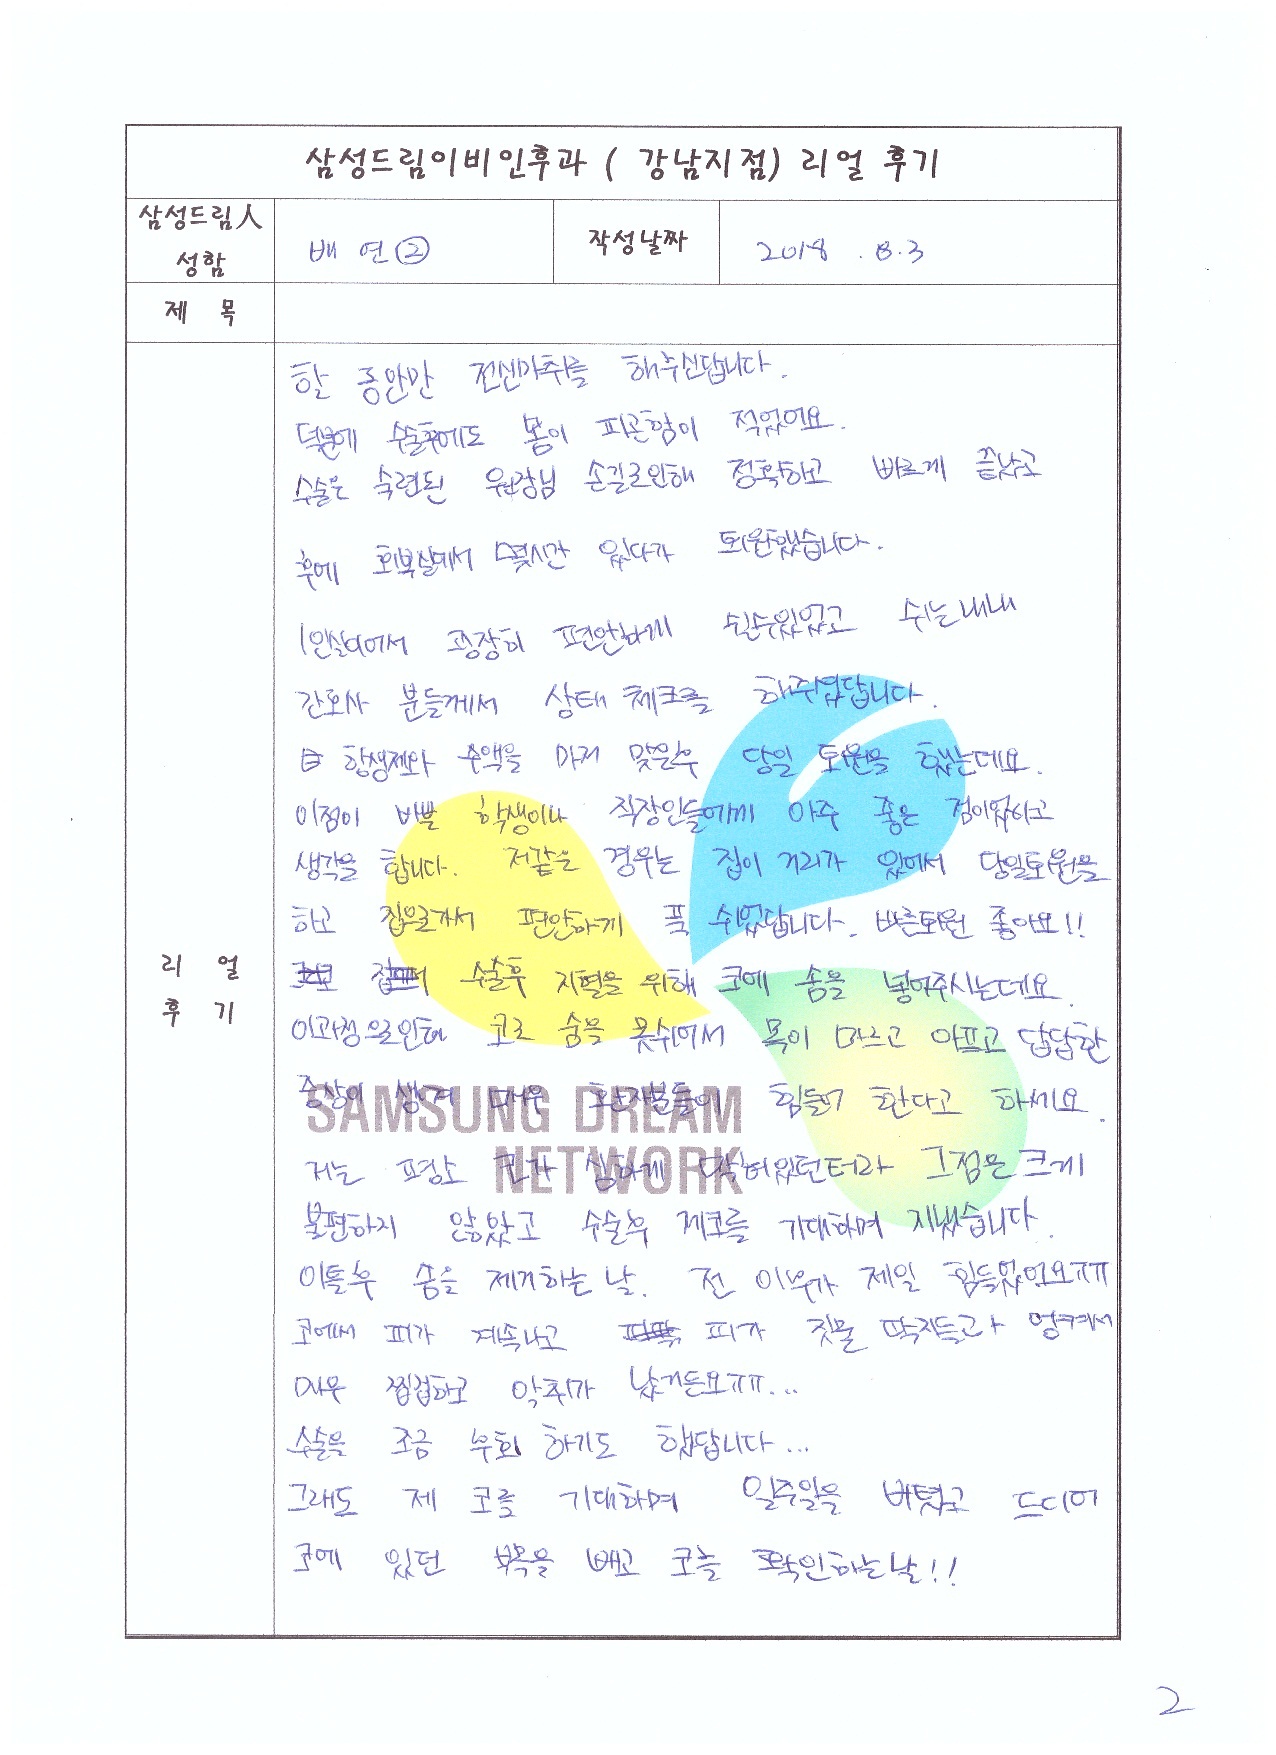 삼성드림이비인후과 ( 강남지점) 리얼 후기
삼성드림人 성함
배 연 ②
작성날짜
2018 . 8. 3
제 목
리 얼 후 기
할 동안만 전신마취를 해주신답니다.
덕분에 수술후에도 몸이 피곤함이 적었어요.
수술은 숙련된 원장님 손길로인해 정확하고 빠르게 끝났고
후에 회복실에서 몇시간 있다가 퇴원했습니다.
1인실이어서 굉장히 편안하게 쉴수있었고 쉬는내내
간호사 분들께서 상태 체크를 해주셨답니다.
항생제와 수액을 마저 맞은후 당일 퇴원을 했는데요.
이점이 바쁠 학생이나 직장인들에께 아주 좋은 점이었다고
생각을 합니다. 저같은 경우는 집이 거리가 있에서 당일퇴원을
하고 집을가서 편안하게 푹 쉬었답니다. 빠른퇴원 좋아요!!
수술후 지혈을 위해 코에 솜을 넣어주시는데요.
이과정으로인해 코로 숨을 못쉬어서 목이 마르고 아프고 답답한
증상이 생겨 매우 환자분들이 힘들기 한다고 하세요.
저는 평소 코가 심하게 막혀있던터라 그점은 크게
불편하지 않았고 수술후 제코를 기대하며 지냈습니다.
이틀후 솜을 제거하는 날. 전 이부가 제일 힘들었어요ㅠㅠ
코에서 피가 계속나고 피가 콧물 딱지들과 엉켜서
매우 찝찝하고 악취가 났거든요ㅠㅠ...
수술을 조금 후회 하기도 했답니다...
그래도 제 코를 기대하며 일주일을 버텼고 드디어
코에 있던 부목을 빼고 코를 확인하는날!!
SAMSUNG DREAM
NETWORK
2